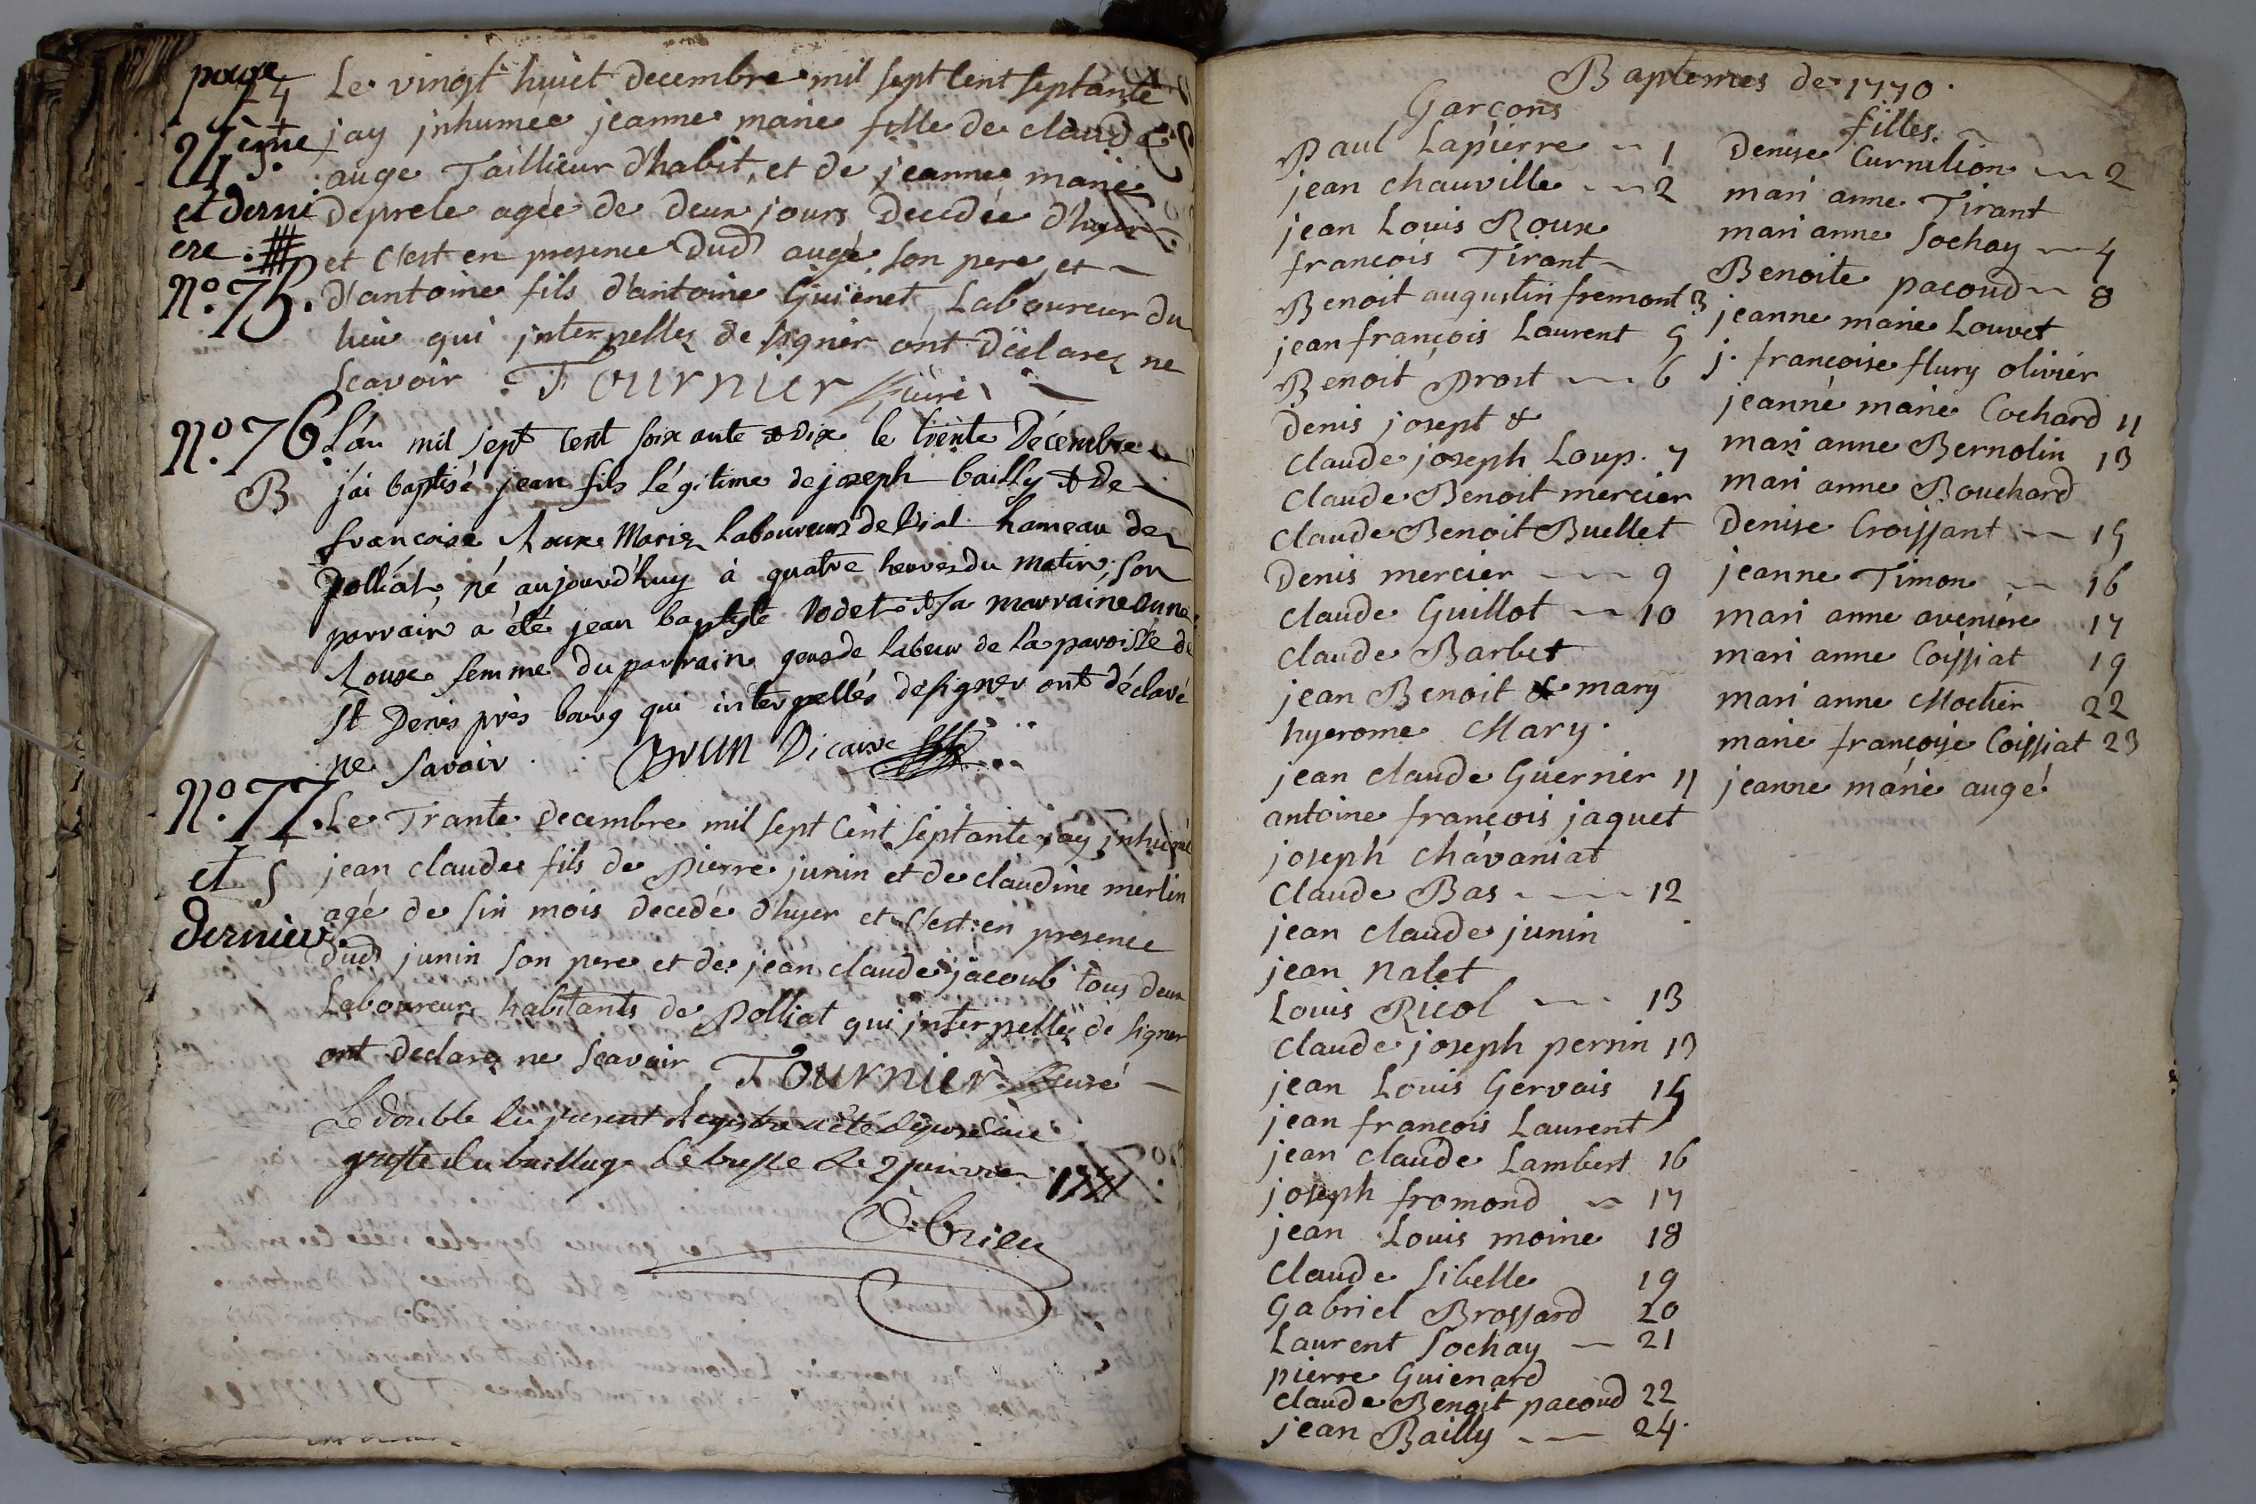 page
24
24ème
S.
et derni
ere.
N.º 75.
Le vingt huict decembre mil sept Cent septante
jay jnhumée jeanne marie fille de claude
augé Taillieur d'habit, et de jeanne marie
Deprele agée de deux jours Decedée d'hyer
et C'est en presence Dud augé son pere et
d'antoine fils d'antoine Guienet Laboureur du
lieu qui jnterpellez de signer ont Déclarez ne
scavoir Tournier Curé
N.º 76.
B
L'an mil sept Cent soixante & Dix le trente Décembre
j'ai baptisé jean fils Légitime de joseph bailly & De
françoise Roux Mariez Laboureurs de Vial hameau de
polliat, né aujourd'huy à quatre heures du matin, son
parrain a été jean baptiste Vodet & sa marraine anne
Roux femme du parrain gens de Labeur de La paroisse de
St Denis près bourg qui interpellés de signer ont déclaré
ne Savoir. Brun Vicaire
N.º 77.
et S
dernier.
Le Trante decembre mil sept Cent septante jay jnhumé
jean claude fils de Pierre junin et de claudine merlin
agé de six mois decedé d'hyer et C'est en presence
dud junin son pere et de jean claude jacoub tous deux
Laboureurs habitants de Polliat qui jnterpellez de signer
ont declarez ne scavoir Tournier Curé
Le double du present Registre a été déposé au
greffe du bailliage de bresse le 2 janvier 1771
Baptemes de 1770.
Garçons
Paul Lapierre 1
jean chauville 2
jean Louis Roux
françois Tirant
Benoit augustin fremont 3
jean françois Laurent 5
Benoit Prost 6
Denis josept &
Claude joseph Loup. 7
Claude Benoit mercier
Claude Benoit Buellet
Denis mercier 9
Claude Guillot 10
Claude Barbet
jean Benoit & mary
hyerome Mary.
jean claude Guerrier 11
antoine françois jaquet
joseph chavaniat
Claude Bas 12
jean claude junin
jean Nalet
Louis Ricol 13
Claude joseph perrin 13
jean Louis Gervais 15
jean françois Laurent
jean claude Lambert 16
joseph fromond 17
jean Louis moine 18
Claude Sibelle 19
Gabriel Brossard 20
Laurent Sochay 21
pierre Guienard
claude Benoit pacoud 22
jean Bailly 24.
filles.
Denise Curnilion 2
mari anne Tirant
mari anne Sochay 4
Benoite pacoud 8
jeanne marie Louvet
j. françoise flury olivier
jeanne marie Cochard 11
mari anne Bernolin 13
mari anne Bouchard
Denise Croissant 15
jeanne Timon 16
mari anne aveniere 17
mari anne Coissiat 19
mari anne Mochier 22
marie françoise Coissiat 23
jeanne marie augé